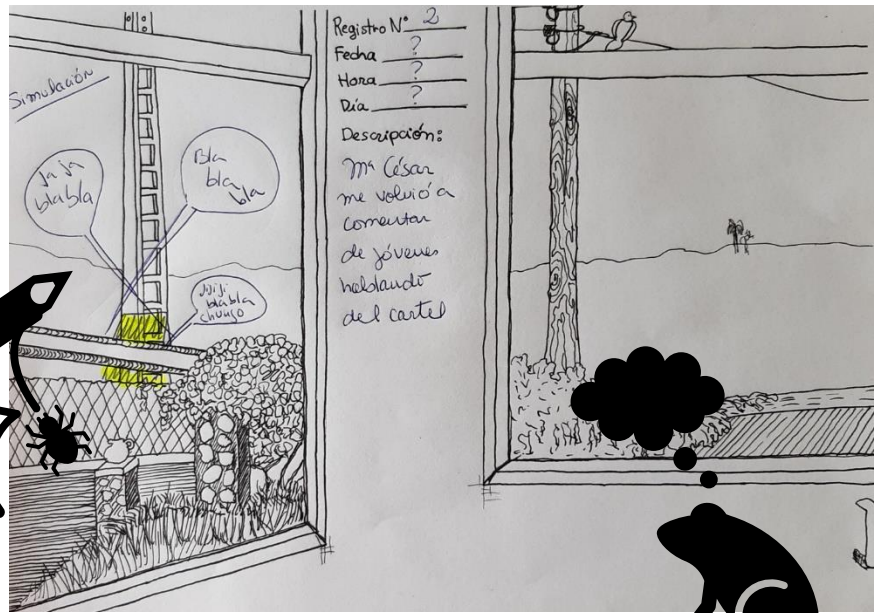 Simulación
Ja ja
blabla
Bla
bla
bla
jijiji
blabla
chungo
Registro Nº 2
Fecha ?
Hora ?
Día ?
Descripción:
Mª César
me volvió a
comentar
de jóvenes
hablando
del cartel